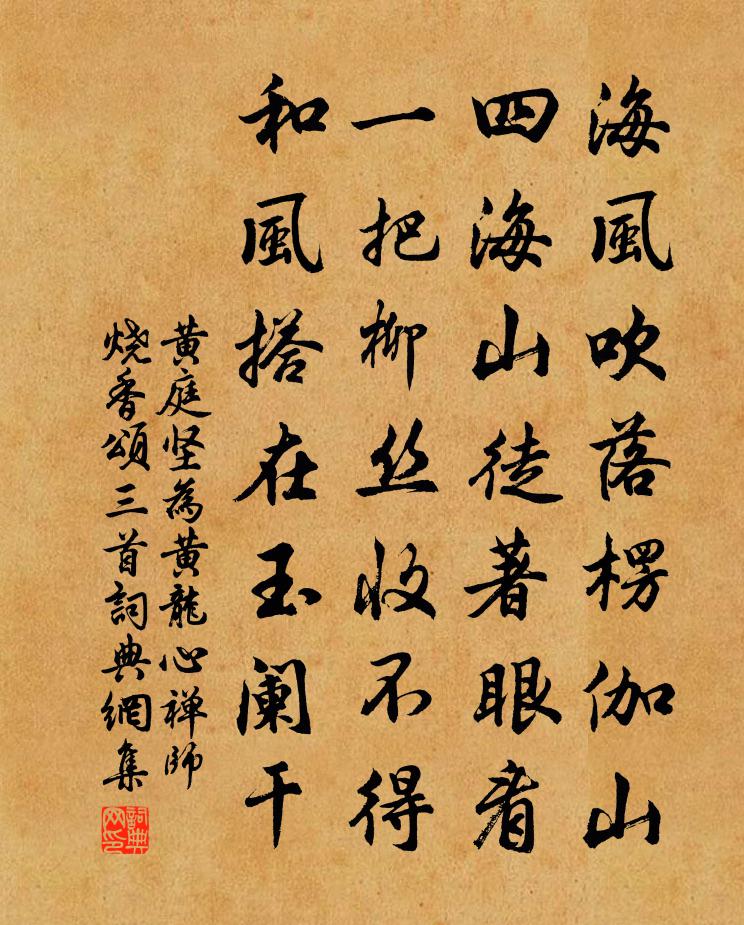 海風吹落楞伽山
四海山徒著眼看
一把柳丝收不得
和風搭在玉阑干
黄庭坚為黄龍心禅師
烧香頌三首詞典網集
詞典网印